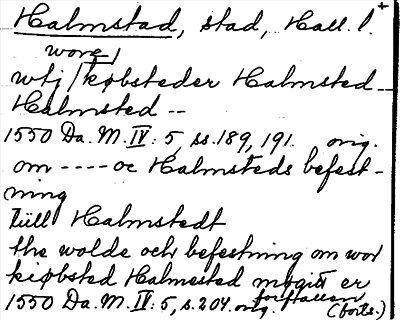 Halmstad, stad, Hall. l. +
wore
wtj | købsteder Halmsted --
Halmsted --
1550 Da. M. IV: 5, ss. 189, 191. orig.
om ---- oc Halmsteds befest-
ning
till Halmstedt
the wolde och befestning om wor
kiøbsted Halmested megit er
forfallenn
1550 Da. M. IV: 5, s. 204. orig. (forts.)